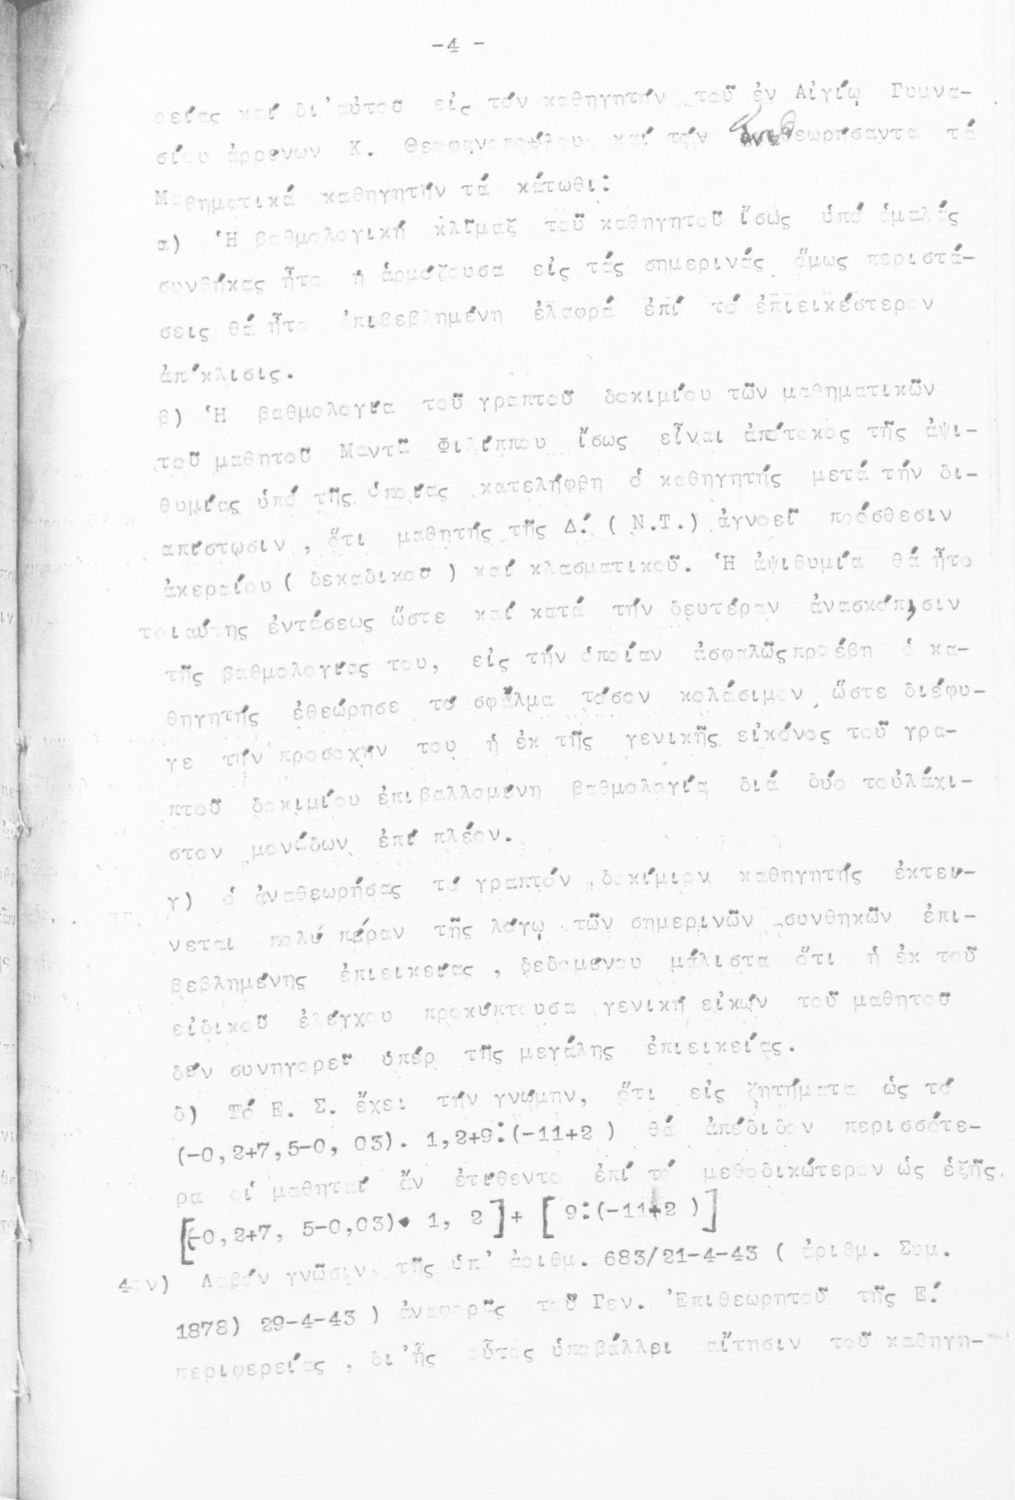 -4 -
ρείας καί δι'αὐτοσ εἰς τόν καθηγητήν τοῦ ἐν Αἰγίῳ Γυμνα-
σίου ἀρρενων Κ. Θεοφανοπούλου καί τόν ἀναθεωρήσαντα τά
Μαθηματικά καθηγητήν τά κάτωθι:
α) Ἡ βαθμολογική κλῖμαξ τοῦ καθηγητοῦ ἴσως ὑπό ὁμαλάς
συνθήκας ἦτο ἡ ἁρμόζουσα εἰς τάς σημερινάς ὅμως περιστά-
σεις θά ἦτο ἐπιβεβλημένη ἐλαφρά ἐπί τό ἐπιεικέστερον
ἀπόκλισις.
β) Ἡ βαθμολογία τοῦ γραπτοῦ δοκιμίου τῶν μαθηματικῶν
τοῦ μαθητοῦ Μαντᾶ Φιλίππου ἴσως εἶναι ἀπότοκος τῆς ἀψι-
θυμίας ὑπό τῆς ὁποίας κατελήφθη ὁ καθηγητής μετά τήν δι-
απίστωσιν , ὅτι μαθητής τῆς Δ! ( Ν.Τ.) ἀγνοεῖ πρόσθεσιν
ἀκεραίου ( δεκαδικοῦ ) καί κλασματικοῦ. Ἡ ἀψιθυμία θά ἦτο
τοιαύτης ἐντάσεως ὥστε καί κατά τήν δευτέραν ἀνασκόπησιν
τῆς βαθμολογίας του, εἰς τήν ὁποίαν ἀσφαλῶς προέβη ὁ κα-
θηγητής ἐθεώρησε τό σφᾶλμα τόσον κολάσιμον ὥστε διέφυ-
γε τήν προσοχήν του ἡ ἐκ τῆς γενικῆς εἰκόνος τοῦ γρα-
πτοῦ δοκιμίου ἐπιβαλλομένη βαθμολογία διά δύο τοὐλάχι-
στον μονάδων ἐπί πλέον.
γ) ὁ ἀναθεωρήσας τό γραπτόν δοκίμιον καθηγητής ἐκτει-
νεται πολύ πέραν τῆς λόγῳ τῶν σημερινῶν συνθηκῶν ἐπι-
βεβλημένης ἐπιεικείας , δεδομένου μάλιστα ὅτι ἡ ἐκ τοῦ
εἰδικοῦ ἐλέγχου προκύπτουσα γενική εἰκών τοῦ μαθητοῦ
δέν συνηγορεῖ ὑπέρ τῆς μεγάλης ἐπιεικείας.
δ) Τό Ε. Σ. ἔχει τήν γνώμην, ὅτι εἰς ζητήματα ὡς τό
(-0,2+7,5-0, 03). 1,2+9:(-11+2 ) θά ἀπέδιδον περισσότε-
ρα οἱ μαθηταί ἄν ἐτίθεντο ἐπί τό μεθοδικώτερον ὡς ἑξῆς.
[(-0,2+7, 5-0,03)• 1, 2 ]+ [ 9:(-11+2 )]
4ον) Λαβόν γνῶσιν τῆς ὑπ' ἀριθμ. 683/21-4-43 ( ἀριθμ. Συμ.
1878) 29-4-43 ) ἀναφορᾶς τοῦ Γεν. Ἐπιθεωρητοῦ τῆς Ε!
περιφερείας , δι'ἧς οὗτος ὑποβάλλει αἴτησιν τοῦ καθηγη-